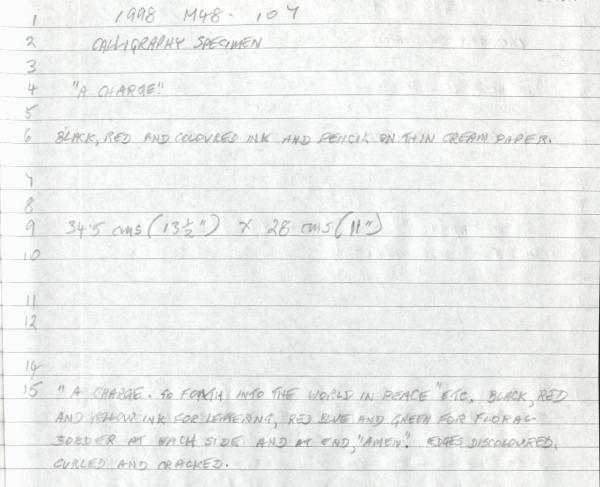 1 1998 M48. 107
2 CALLIGRAPHY SPECIMEN
3
4 "A CHARGE"
5
6 BLACK, RED AND COLOURED INK AND PENCIL ON THIN CREAM PAPER.
7
8
9 34.5 cms (13½") X 28 cms (11")
10
11
12
14
15 "A CHARGE. GO FORTH INTO THE WORLD IN PEACE" ETC. BLACK, RED
AND YELLOW INK FOR LETTERING, RED BLUE AND GREEN FOR FLORAL
BORDER AT EACH SIDE AND AT END, "AMEN". EDGES DISCOLOURED,
CURLED AND CRACKED.